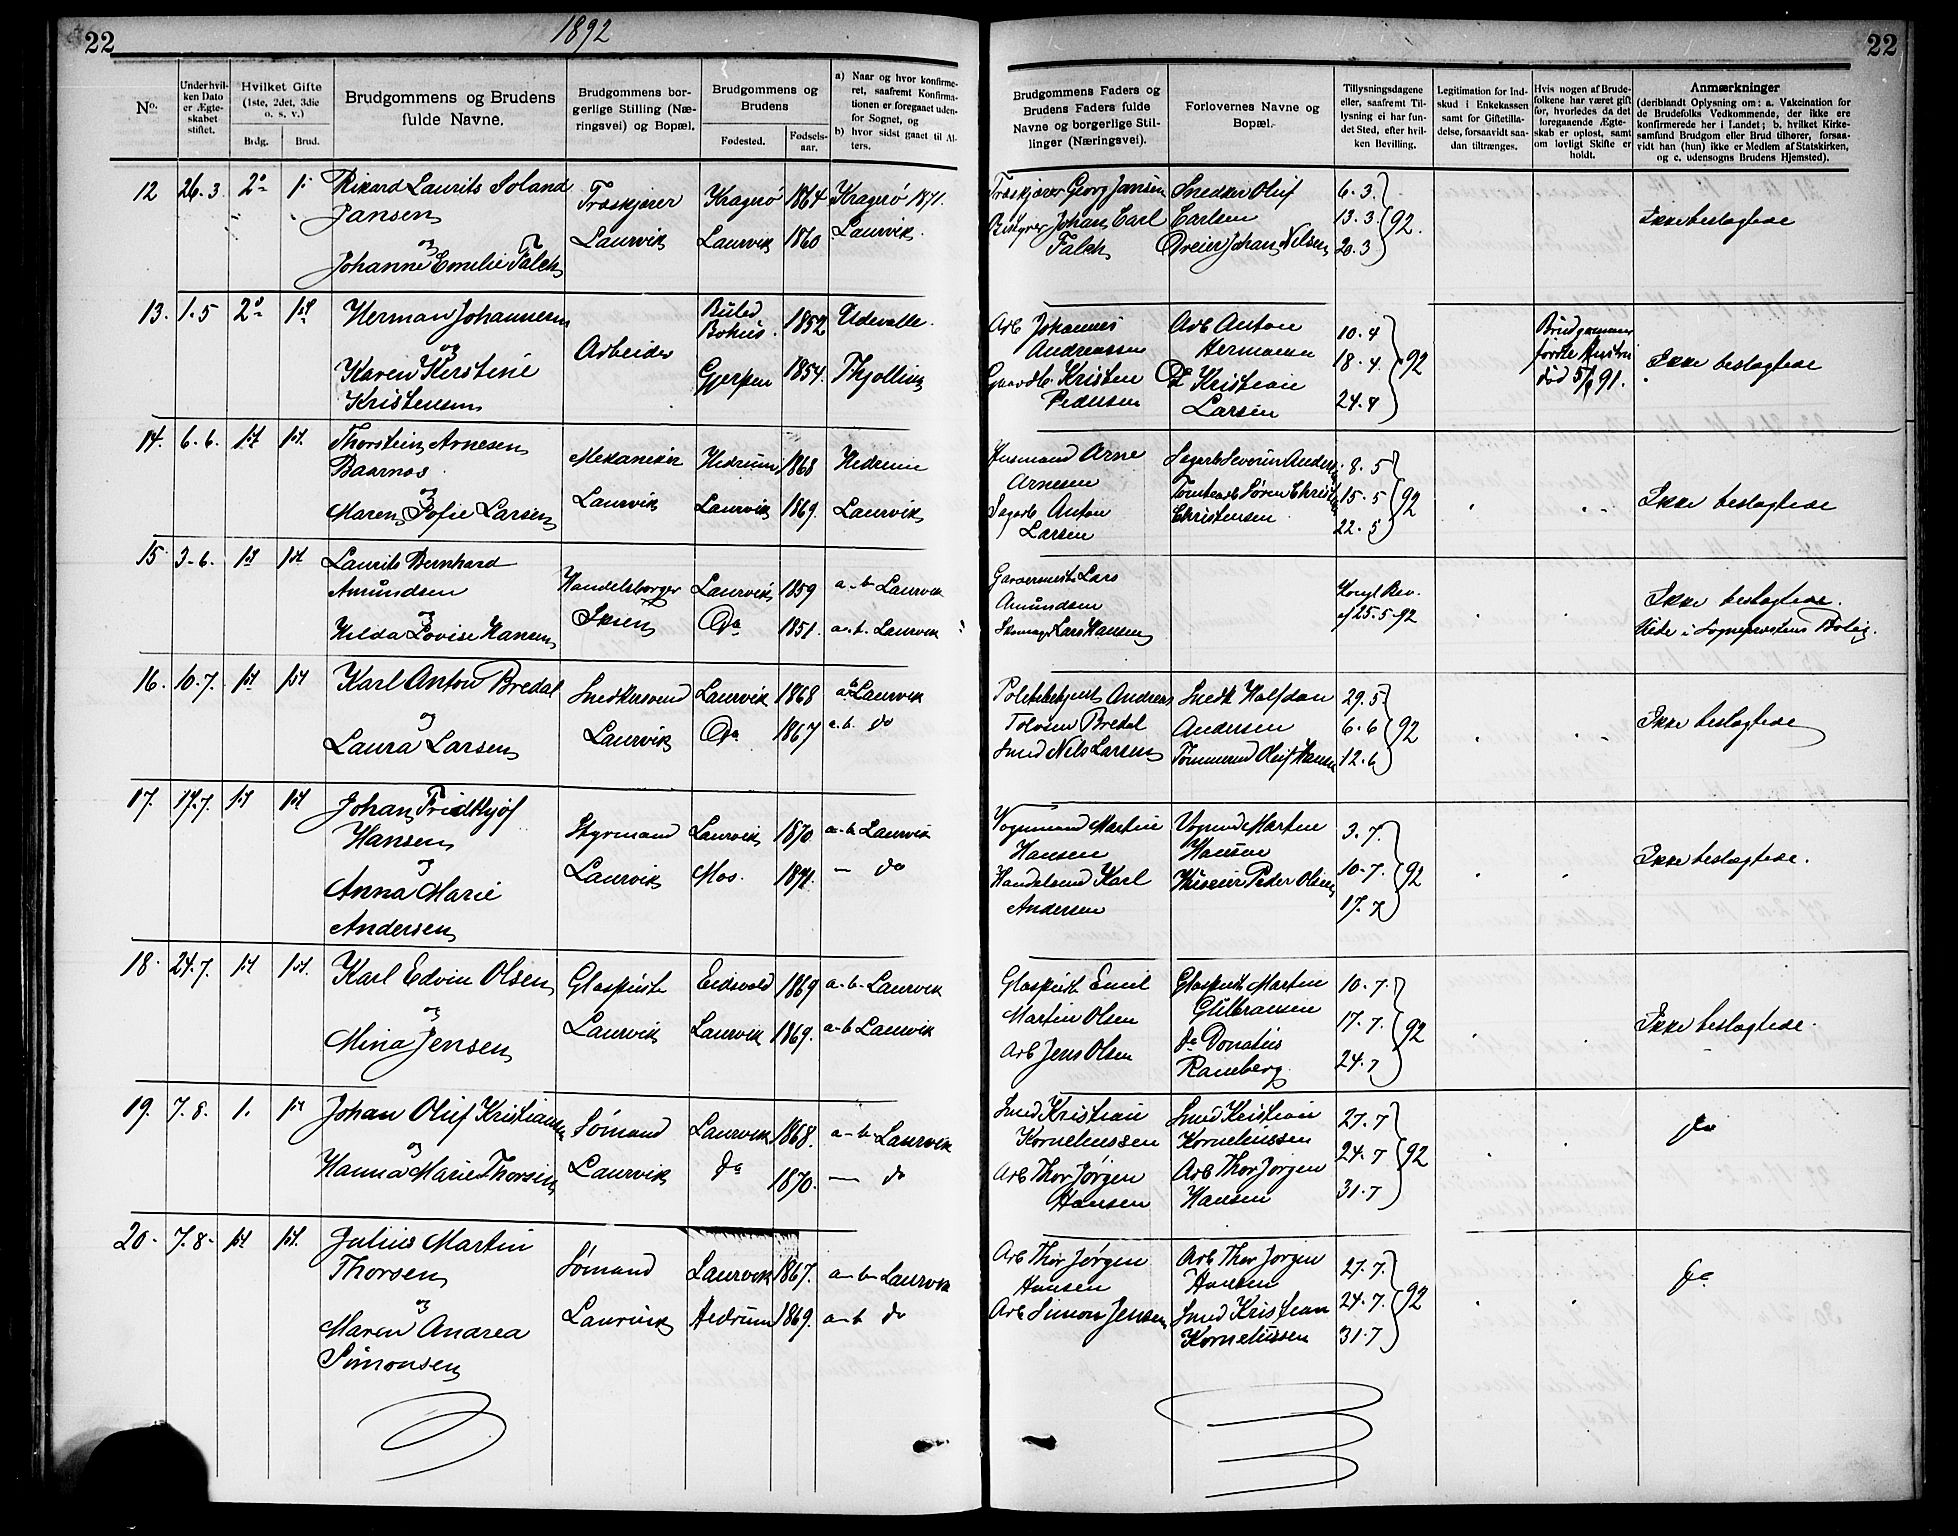 22
1892
22
No.
Under hvilken Dato er Ægteskabet stiftet.
Hvilket Gifte (1ste, 2det, 3die o. s. v.)
Brdg.
Brud.
Brudgommens og Brudens fulde Navne.
Brudgommens borgerlige Stilling (Næringsvei) og Bopæl.
Brudgommens og Brudens
Fødested.
Fødselsaar.
a) Naar og hvor konfirmeret, saafremt Konfirmationen er foregaaet udenfor Sognet, og
b) hvor sidst gaaet til Alters.
Brudgommens Faders og Brudens Faders fulde Navne og borgerlige Stillinger (Næringsvei).
Forlovernes Navne og Bopæl.
Tillysningsdagene eller, saafremt Tillysning ei har fundet Sted, efter hvilken Bevilling.
Legitimation for Indskud i Enkekassen samt for Giftetilladelse, forsaavidt saadan tiltrænges.
Hvis nogen af Brudefolkene har været gift før, hvorledes da det foregaaende Ægteskab er opløst, samt om lovligt Skifte er holdt.
Anmærkninger
(deriblandt Oplysning om: a. Vakcination for de Brudefolks Vedkommende, der ikke ere konfirmerede her i Landet; b. hvilket Kirkesamfund Brudgom eller Brud tilhører, forsaavidt han (hun) ikke er Medlem af Statskirken, og c. udensogns Brudens Hjemsted).
12 26.3. 2
Rikard Laurits Soland
Jansen
og
Johanne Emelie Falck
Træskjærer
Laurvik
Kragerø 1864 Kragerø 1871.
Laurvik 1860 Laurvik.
Træskjærer Georg Jansen
Johan Carl
Falck
Snedker Oluf
Carlsen
Dreier Johan Nilsen
6.3.
13.3
20.3
92.
Ikke beslægtede
13. 1.5 2 1st
Herman Johannesen
og
Karen Kirstine
Kristensen
Arbeider
Bokus. 1852 Udevalle.
Gjerpen 1854. Thjølling
Arb Johannes
Andreassen
Gaardb. Kristen
Pedersen
Arb Anton
Hermansen
Do Kristian
Larsen
10.4
18.4.
24.4
92
Brudgommens
første Hustru
død 5/9 91.
Ikke beslægtede
14. 6.6. 1st 1st.
Thorstein Arnesen
Baarnas
og
Maren Sofie Larsen
Mekaniker
Laurvik
Hedrum 1868 Hedrum
Laurvik 1869. Laurvik
Husmand Arne
Arnesen
Sagarb Anton
Larsen
Sagarb Severin Anders
Tomtearb Søren Christ
Christensen
8.5
15.5
22.5
92
Ikke beslægtede
15 3.6. 1st 1st
Laurits Bernhard
Amundsen
og
Hilda Lovise Hansen
Handelsborger
Skien
Laurvik 1859 a-b Laurvik
Do 1851. a-b. Laurvik
Garvermester Lars
Amundsen
Skomager Lars Hansen
Kongl Bev.
af 25.5.92
Ikke beslægtede.
Viede i Sogneprestens Bolig.
16. 10.7. 1st 1st
Karl Anton Bredal
og
Laura Larsen
Snedkersvend
Laurvik
Laurvik 1868 ab Laurvik
Do 1867 a-b. do
Politibetjent Andreas
Tolvsen Bredal
Smed Nils Larsen
Snedk Halfdan
Andersen
Tømmermd Oluf Hansen
29.5
6.6
12.6
92
Ikke beslægtede
17. 17.7. 1st 1st
Johan Fridthjof
Hansen
og
Anna Marie
Andersen
Styrmand
Laurvik
Laurvik 1870. a-b Laurvik
Mos. 1871. — do
Vognmand Martin
Hansen
Handelsmd Karl
Andersen
Vognmd Martin
Hansen
Peder Olsen
3.7.
10.7.
17.7
92
Ikke beslægtede.
18. 24.7. 1st 1st.
Karl Edvin Olsen
og
Mina Jensen
Glaspuster
Laurvik
Eidsvold 1869 a-b-Laurvik
Laurvik 1869. a-b Laurvik
Glaspust. Emil
Martin Olsen
Arb Jens Olsen
Glaspust. Martin
Gulbransen
do Donatius
Ramberg
10.7.
17.7.
24.7
92
Ikke beslægtede.
19. 7.8. 1. 1st
Johan Oluf Kristiansen
og
Hanna Marie Thorsen
Sømand
Laurvik
Laurvik 1868. a-b-Laurvik
do 1870. — do
Smed Kristian
Korneliussen
Arb Thor Jørgen
Hansen
Smed Kristian
Korneliussen
Arb Thor Jørgen
Hansen
27.7
24.7
31.7
92
do
20. 7.8. 1st 1st.
Julius Martin
Thorsen
og
Maren Andrea
Simonsen
Sømand
Laurvik
Laurvik 1867. a-b-Laurvik
Hedrum 1869. a-b do
Arb Thor Jørgen
Hansen
Arb Simon Jensen
Arb Thor Jørgen
Hansen
Smed Kristian
Korneliussen
27.7.
24.7.
31.7
92
do